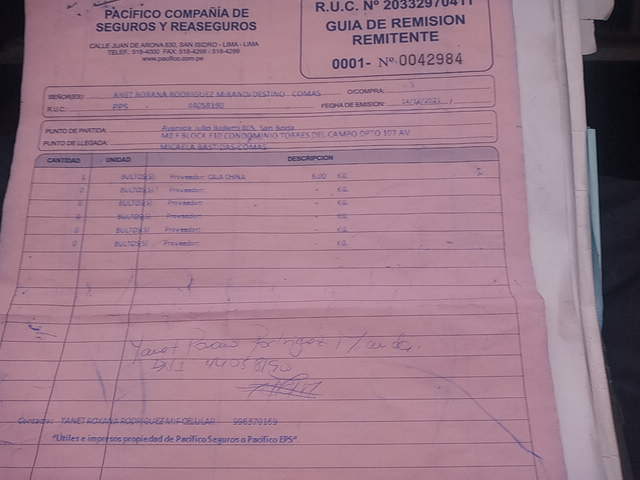 PACÍFICO COMPAÑÍA DE
SEGUROS Y REASEGUROS
CALLE JUAN DE ARONA 830, SAN ISIDRO - LIMA - LIMA
TELEF.: 518-4000 FAX: 518-4295 / 518-4299
www.pacifico.com.pe
R.U.C. Nº 20332970411
GUIA DE REMISION
REMITENTE
0001- Nº 0042984
SEÑOR(ES): ANET ROXANA RODRIGUEZ MIRANDA DESTINO - COMAS O/COMPRA:
R.U.C. PPS - FECHA DE EMISION:
PUNTO DE PARTIDA: San Borja
PUNTO DE LLEGADA: MZ F BLOCK F10 CONDOMINIO TORRES DEL CAMPO DPTO 107 AV
MICAELA BASTIDAS-COMAS
CANTIDAD UNIDAD DESCRIPCION
BULTO(S) Proveedor: CAJA CHINA 6.00 KG
0 BULTO(S) Proveedor: - KG
0 BULTO(S) Proveedor: - KG
0 BULTO(S) Proveedor: - KG
0 BULTO(S) Proveedor: - KG
0 BULTO(S) Proveedor: - KG
Yanet
DNI
Contacto: YANET ROXANA RODRIGUEZ M CELULAR
"Utiles e impresos propiedad de Pacífico Seguros o Pacífico EPS".